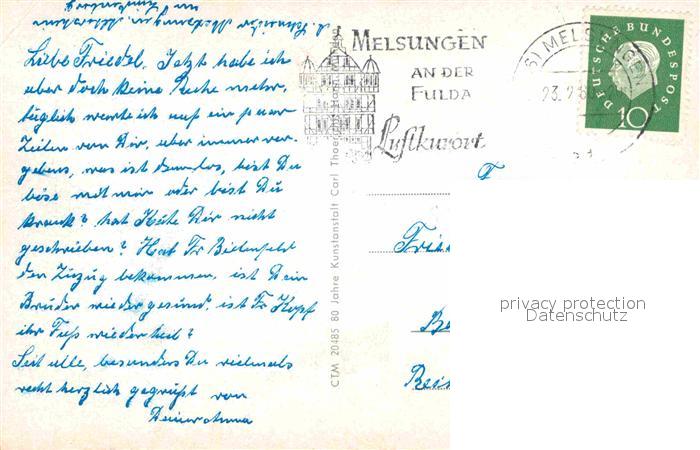 Liebe Friedel. Jetzt habe ich
aber doch keine Ruhe mehr,
täglich warte ich auf ein paar
Zeilen von Dir, aber immer ver-
gebens, was ist denn los, bist Du
böse mit mir oder bist Du
krank? hat Käte Dir nicht
geschrieben? Hat Fr Bielenfeld
den Zuzug bekommen, ist Dein
Bruder wieder gesund, ist Fr Kopf
ihr Fuß wieder heil?
Seit alle, besonders Du vielmals
recht herzlich gegrüßt von
Deiner Anna
CTM 20485 80 Jahre Kunstanstalt Carl Thoericht
MELSUNGEN
AN DER
FULDA
Luftkurort
MELSUNGEN
23.9
DEUTSCHE BUNDESPOST
10
F
Frie
Be
Bei
privacy protection
Datenschutz